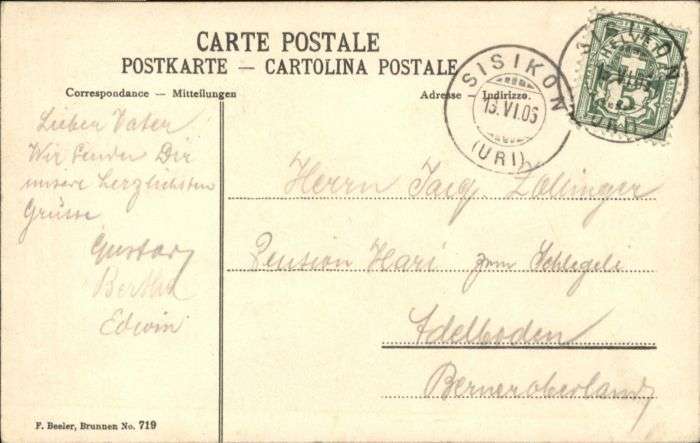 CARTE POSTALE
POSTKARTE — CARTOLINA POSTALE
Correspondance — Mitteilungen
Adresse — Indirizzo.
SISIKON
13.VI.06
(URI)
HELVETIA
5
Lieber Vater
Wir senden Dir
unsere herzlichsten
Grüsse
Gustav
Bertha
Edwin
Herrn Jacq. Zollinger
Pension Hari zum Schlegeli
Adelboden
Berneroberland
F. Beeler, Brunnen No. 719